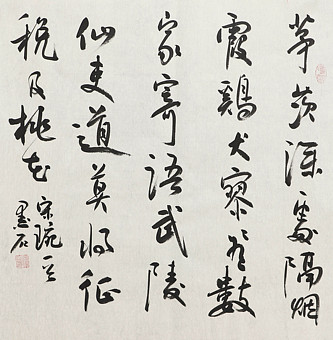 茅茨深處隔烟
霞鷄犬寥々有數
家寄語武陵
仙吏道莫將征
稅及桃花 宋琬
墨石